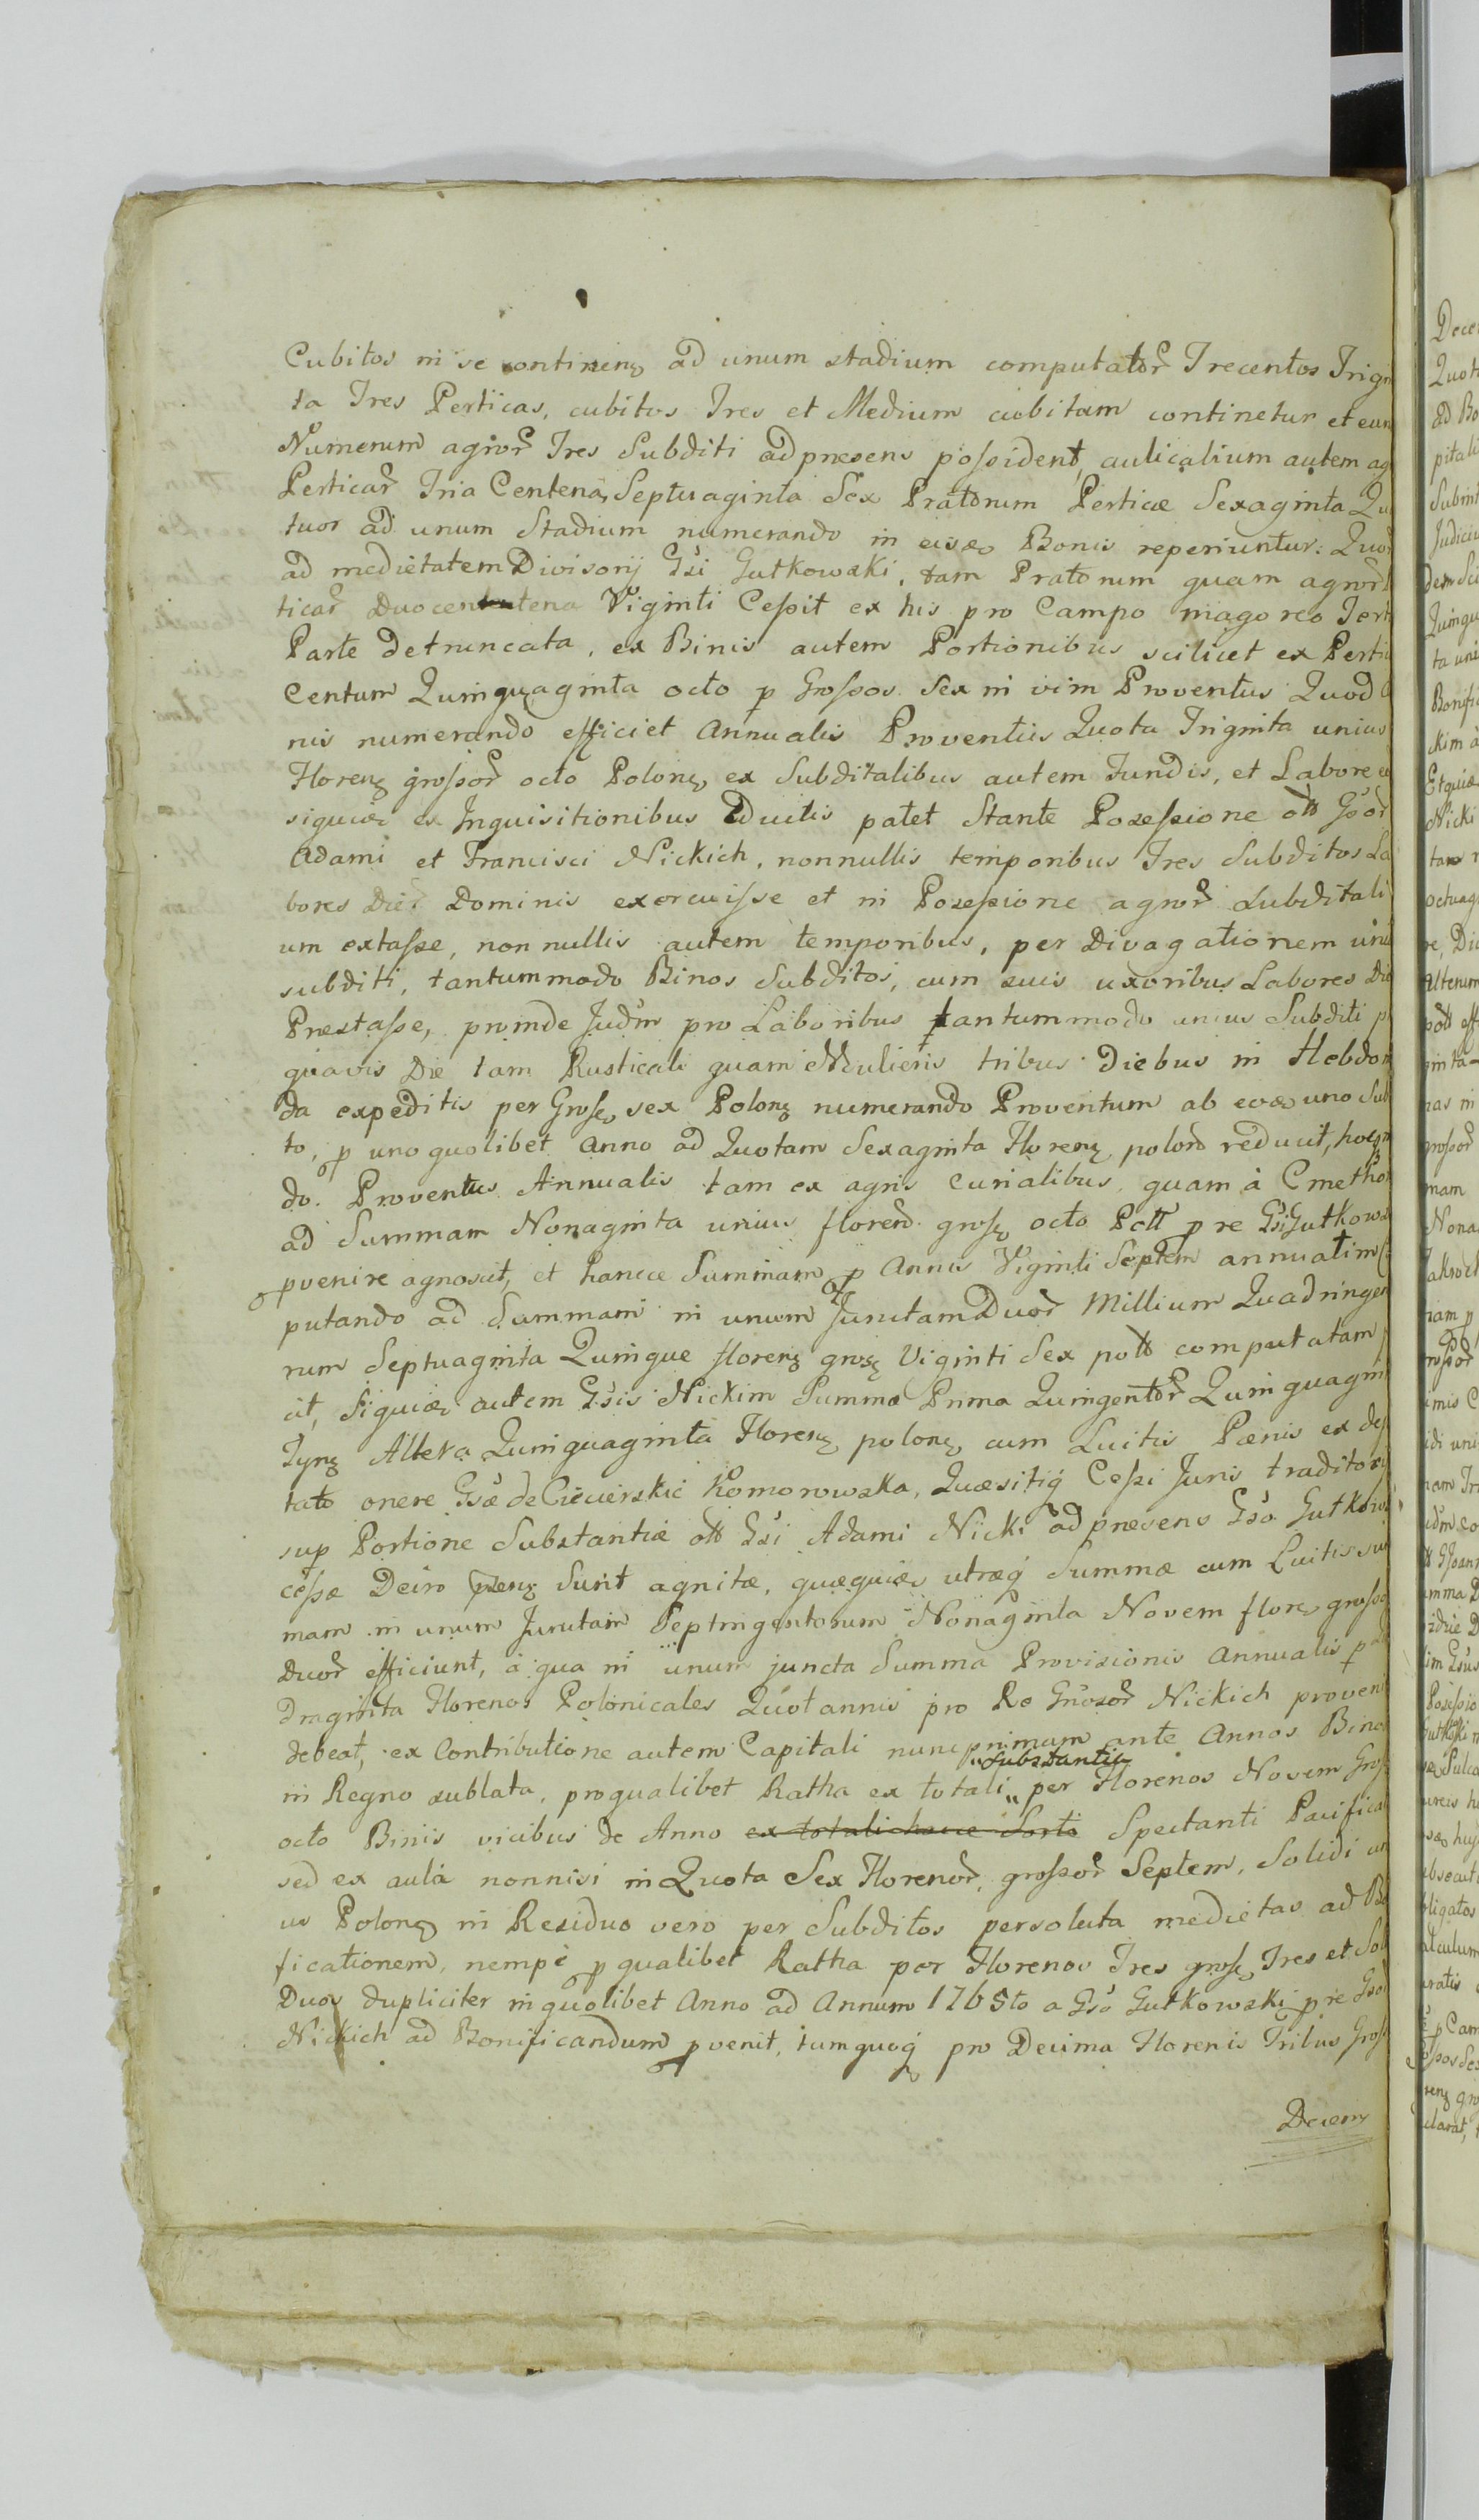 Cubitos in se continenʒ ad unum stadium computator̃ Trecentos Trigin
ta Tres Perticas, cubitos Tres et Medium cubitum continetur et eun
Numerum agror̃ Tres Subditi ad praesens possident, aulicalium autem ag
Perticar̃ Tria Centena, Septuaginta Sex Pratorum Perticae Sexaginta Qu
tuor ad unum Stadium numerando in eisdem Bonis reperiuntur. Quor
ad medietatem Divisorij Gsi Gutkowski, tam Pratorum quam agror̃
ticar̃ Duocentena Viginti Cessit ex his pro Campo niagoreo Tert
Parte detruncata, ex Binis autem Portionibus scilicet ex Pertic
Centum Quinquaginta octo p Grossos Sex in vim Proventus Quod
nis numerando efficiet Annualis Proventus Quota Triginta unius
Florenʒ grossor̃ octo Polonʒ, ex Subditalibus autem Fundis, et Labore
siquidem ex Inquisitionibus Eductis patet Stante Possessione ott Gsor̃
Adami et Francisci Nickich, nonnullis temporibus Tres Subditos La
bores Dier̃ Dominis exercuisse et in Possessione agror̃ Subditali
um extasse, non nullis autem temporibus, per Divagationem unius
subditi, tantummodo Binos Subditos, cum suis uxoribus Labores Die
Praestasse, proinde Judm pro Laboribus tantummodo unius Subditi p
quavis Die tam Rusticali quam Mulieris tribus Diebus in Hebdom
da expeditis per Gross, sex Polonʒ numerando Proventum ab eodem uno Sub
to, p uno quolibet Anno ad Quotam Sexaginta Florenʒ polon reducit, hoc
do. Proventus Annualis tam ex agris Curialibus, quam à Cmethon
ad Summam Nonaginta unius floren. grosʒ octo Poll p re Gsi Gutkows
pvenire agnoscit, et hancce Summam p Annis Viginti Septem annuatim
putando ad Summam in unum Junctam Duor̃ Millium Quadringen
rum Septuaginta Quinque florenʒ grosʒ Viginti Sex poll computatam
cit, Siquidem autem Gsis Nickim Summa Prima Quingentor̃ Quinquagin
Tynʒ Altera Quinquaginta Florenʒ polonʒ cum Luitis Paenis ex des
tato onere Gsae de Ciecierskie Komorowska, Quaesitiq Cessi Juris traditorij
sup Portione Substantiae ott Gsi Adami Nicki ad praesens Gso Gutkows
cessae Deiro Sunt agnitae, quaequidem utraeq Summae cum Luitis
mam in unum Junctam Septingentorum Nonaginta Novem flores gross
Duor̃ efficiunt, à qua in unum juncta Summa Provisionis Annualis p
draginta Florenos Polonicales Quotannis pro Re Gnosor̃ Nickich proveni
debeat, ex Contributione autem Capitali nunc primum ante Annos Binos
in Regno sublata, pro qualibet Ratha ex totali „substantia„ per Florenos Novem Gross
octo Binis vicibus de Anno ex totali hacce Sorte Spectanti Pacifica
sed ex aula nonnisi in Quota Sex Florenor̃, grossor̃ Septem, Solidi un
us Polonʒ in Residuo vero per Subditos persoluta medietas ad Bo
ficationem, nempè p qualibet Ratha per Florenos Tres gross, Tres et Sol
Duos dupliciter in quolibet Anno ad Annum 1765to a Gso Gutkowski p re Gsor
Nickich ad Bonificandum pvenit, tumquoq pro Decima Florenis Tribus Gross
Decem